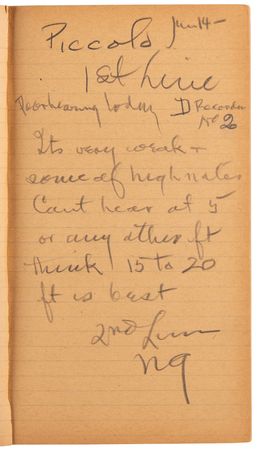 Piccolo Jun 14 -
1st Line
Poor hearing today D Recorder
No 2
Its very weak +
some of high notes
Cant hear at 5
or any other ft
think 15 to 20
ft is best
2nd Line
NG